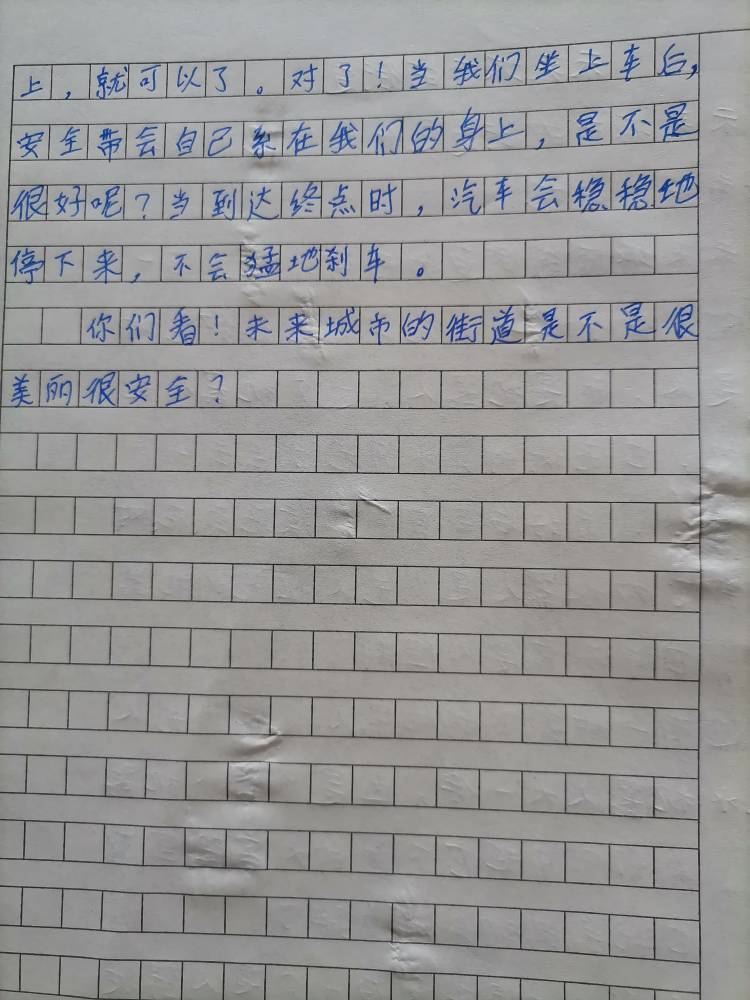 上，就可以了。对了！当我们坐上车后，
安全带会自己系在我们的身上，是不是
很好呢？当到达终点时，汽车会稳稳地
停下来，不会猛地刹车。
你们看！未来城市的街道是不是很
美丽很安全？